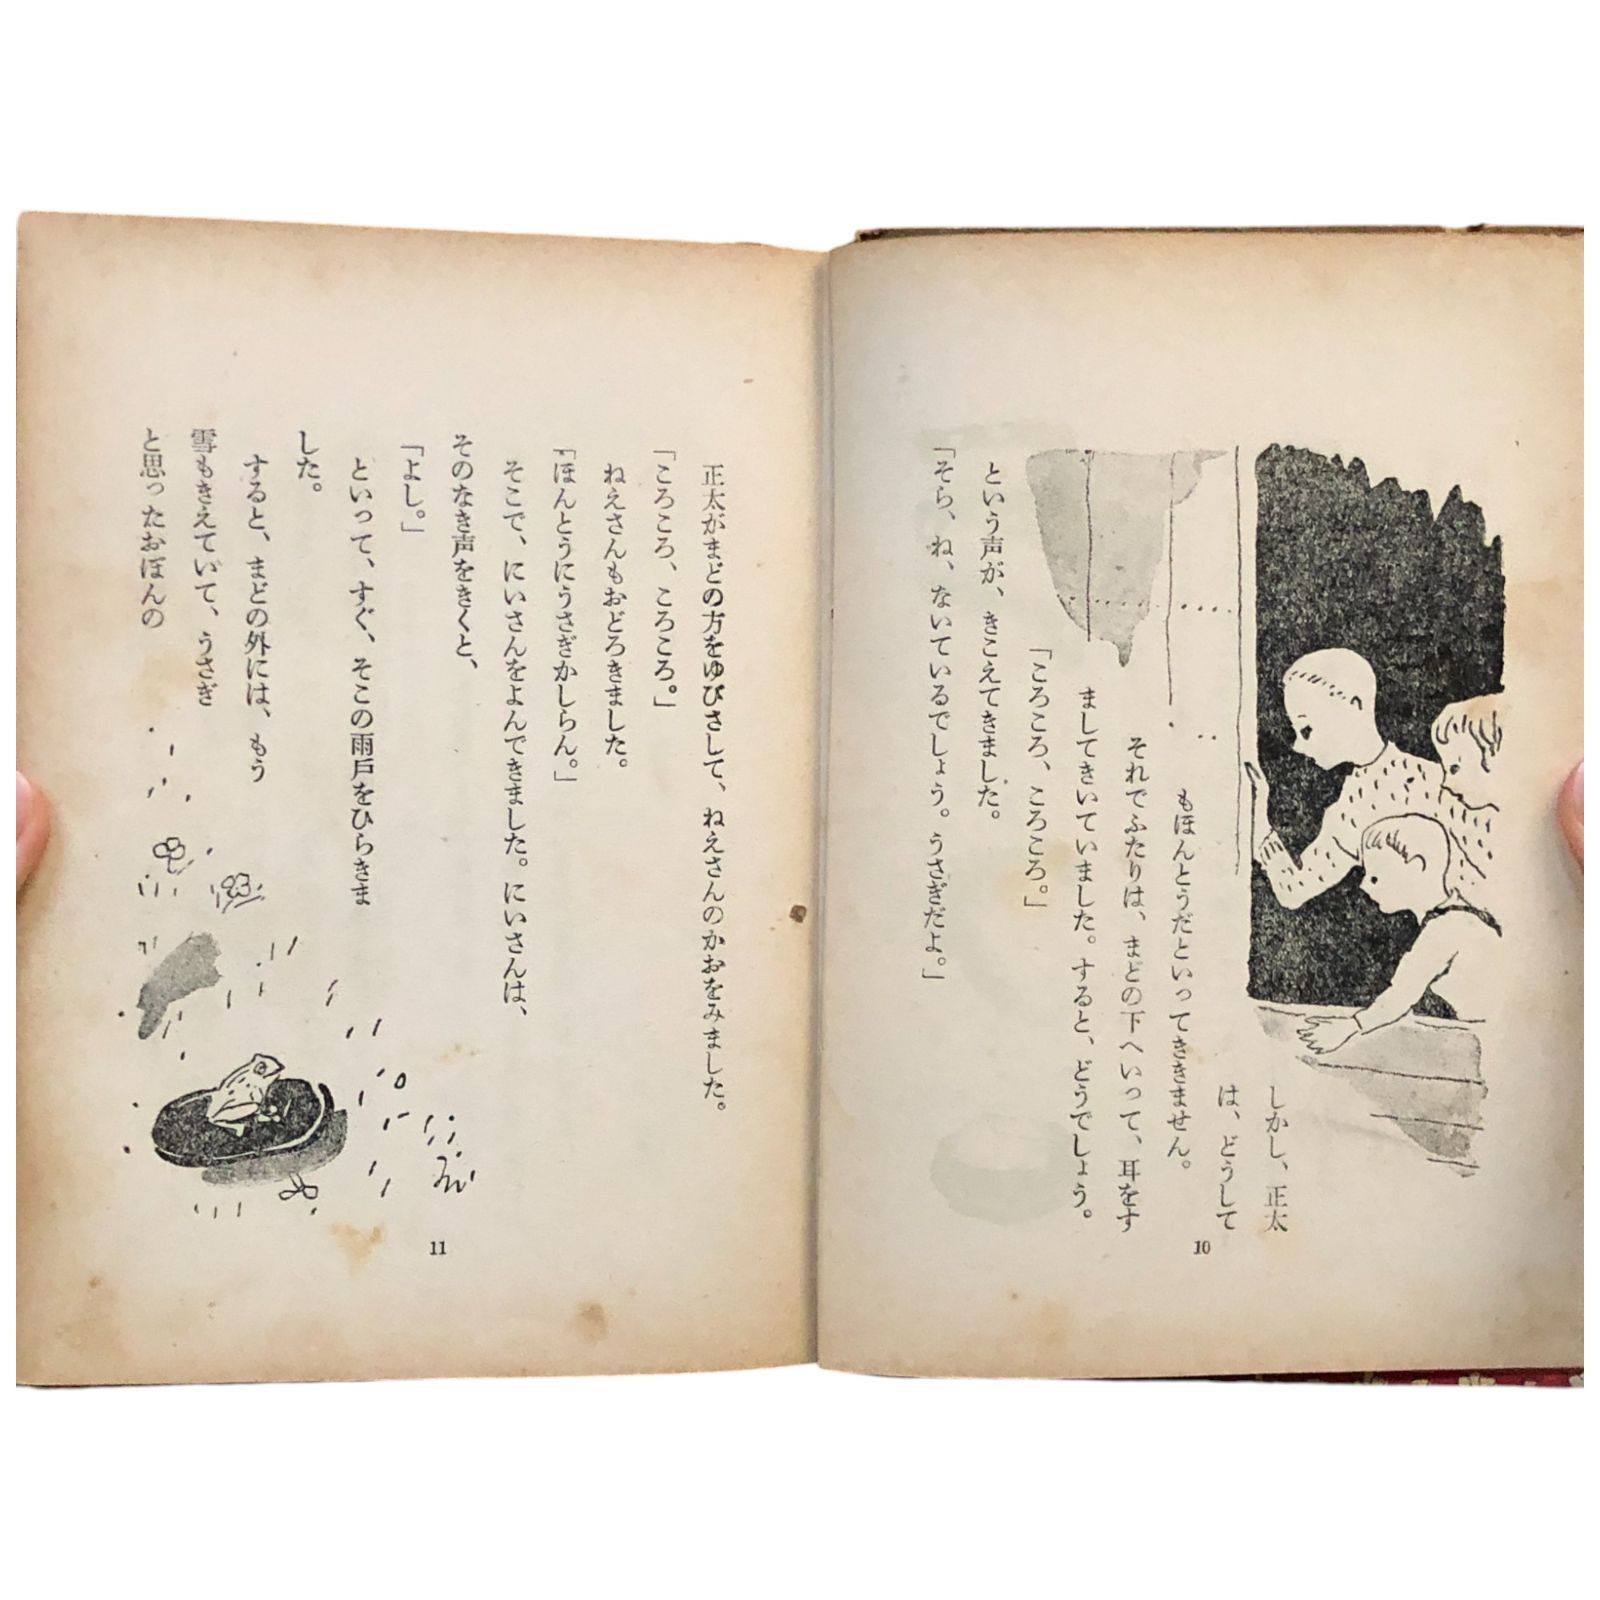 しかし、正太
は、どうして
もほんとうだといってききません。
それでふたりは、まどの下へいって、耳をす
ましてきいていました。すると、どうでしょう。
「ころころ、ころころ。」
という声が、きこえてきました。
「そら、ね、ないているでしょう。うさぎだよ。」
10
正太がまどの方をゆびさして、ねえさんのかおをみました。
「ころころ、ころころ。」
ねえさんもおどろきました。
「ほんとうにうさぎかしらん。」
そこで、にいさんをよんできました。にいさんは、
そのなき声をきくと、
「よし。」
といって、すぐ、そこの雨戸をひらきま
した。
すると、まどの外には、もう
雪もきえていて、うさぎ
と思ったおぼんの
11